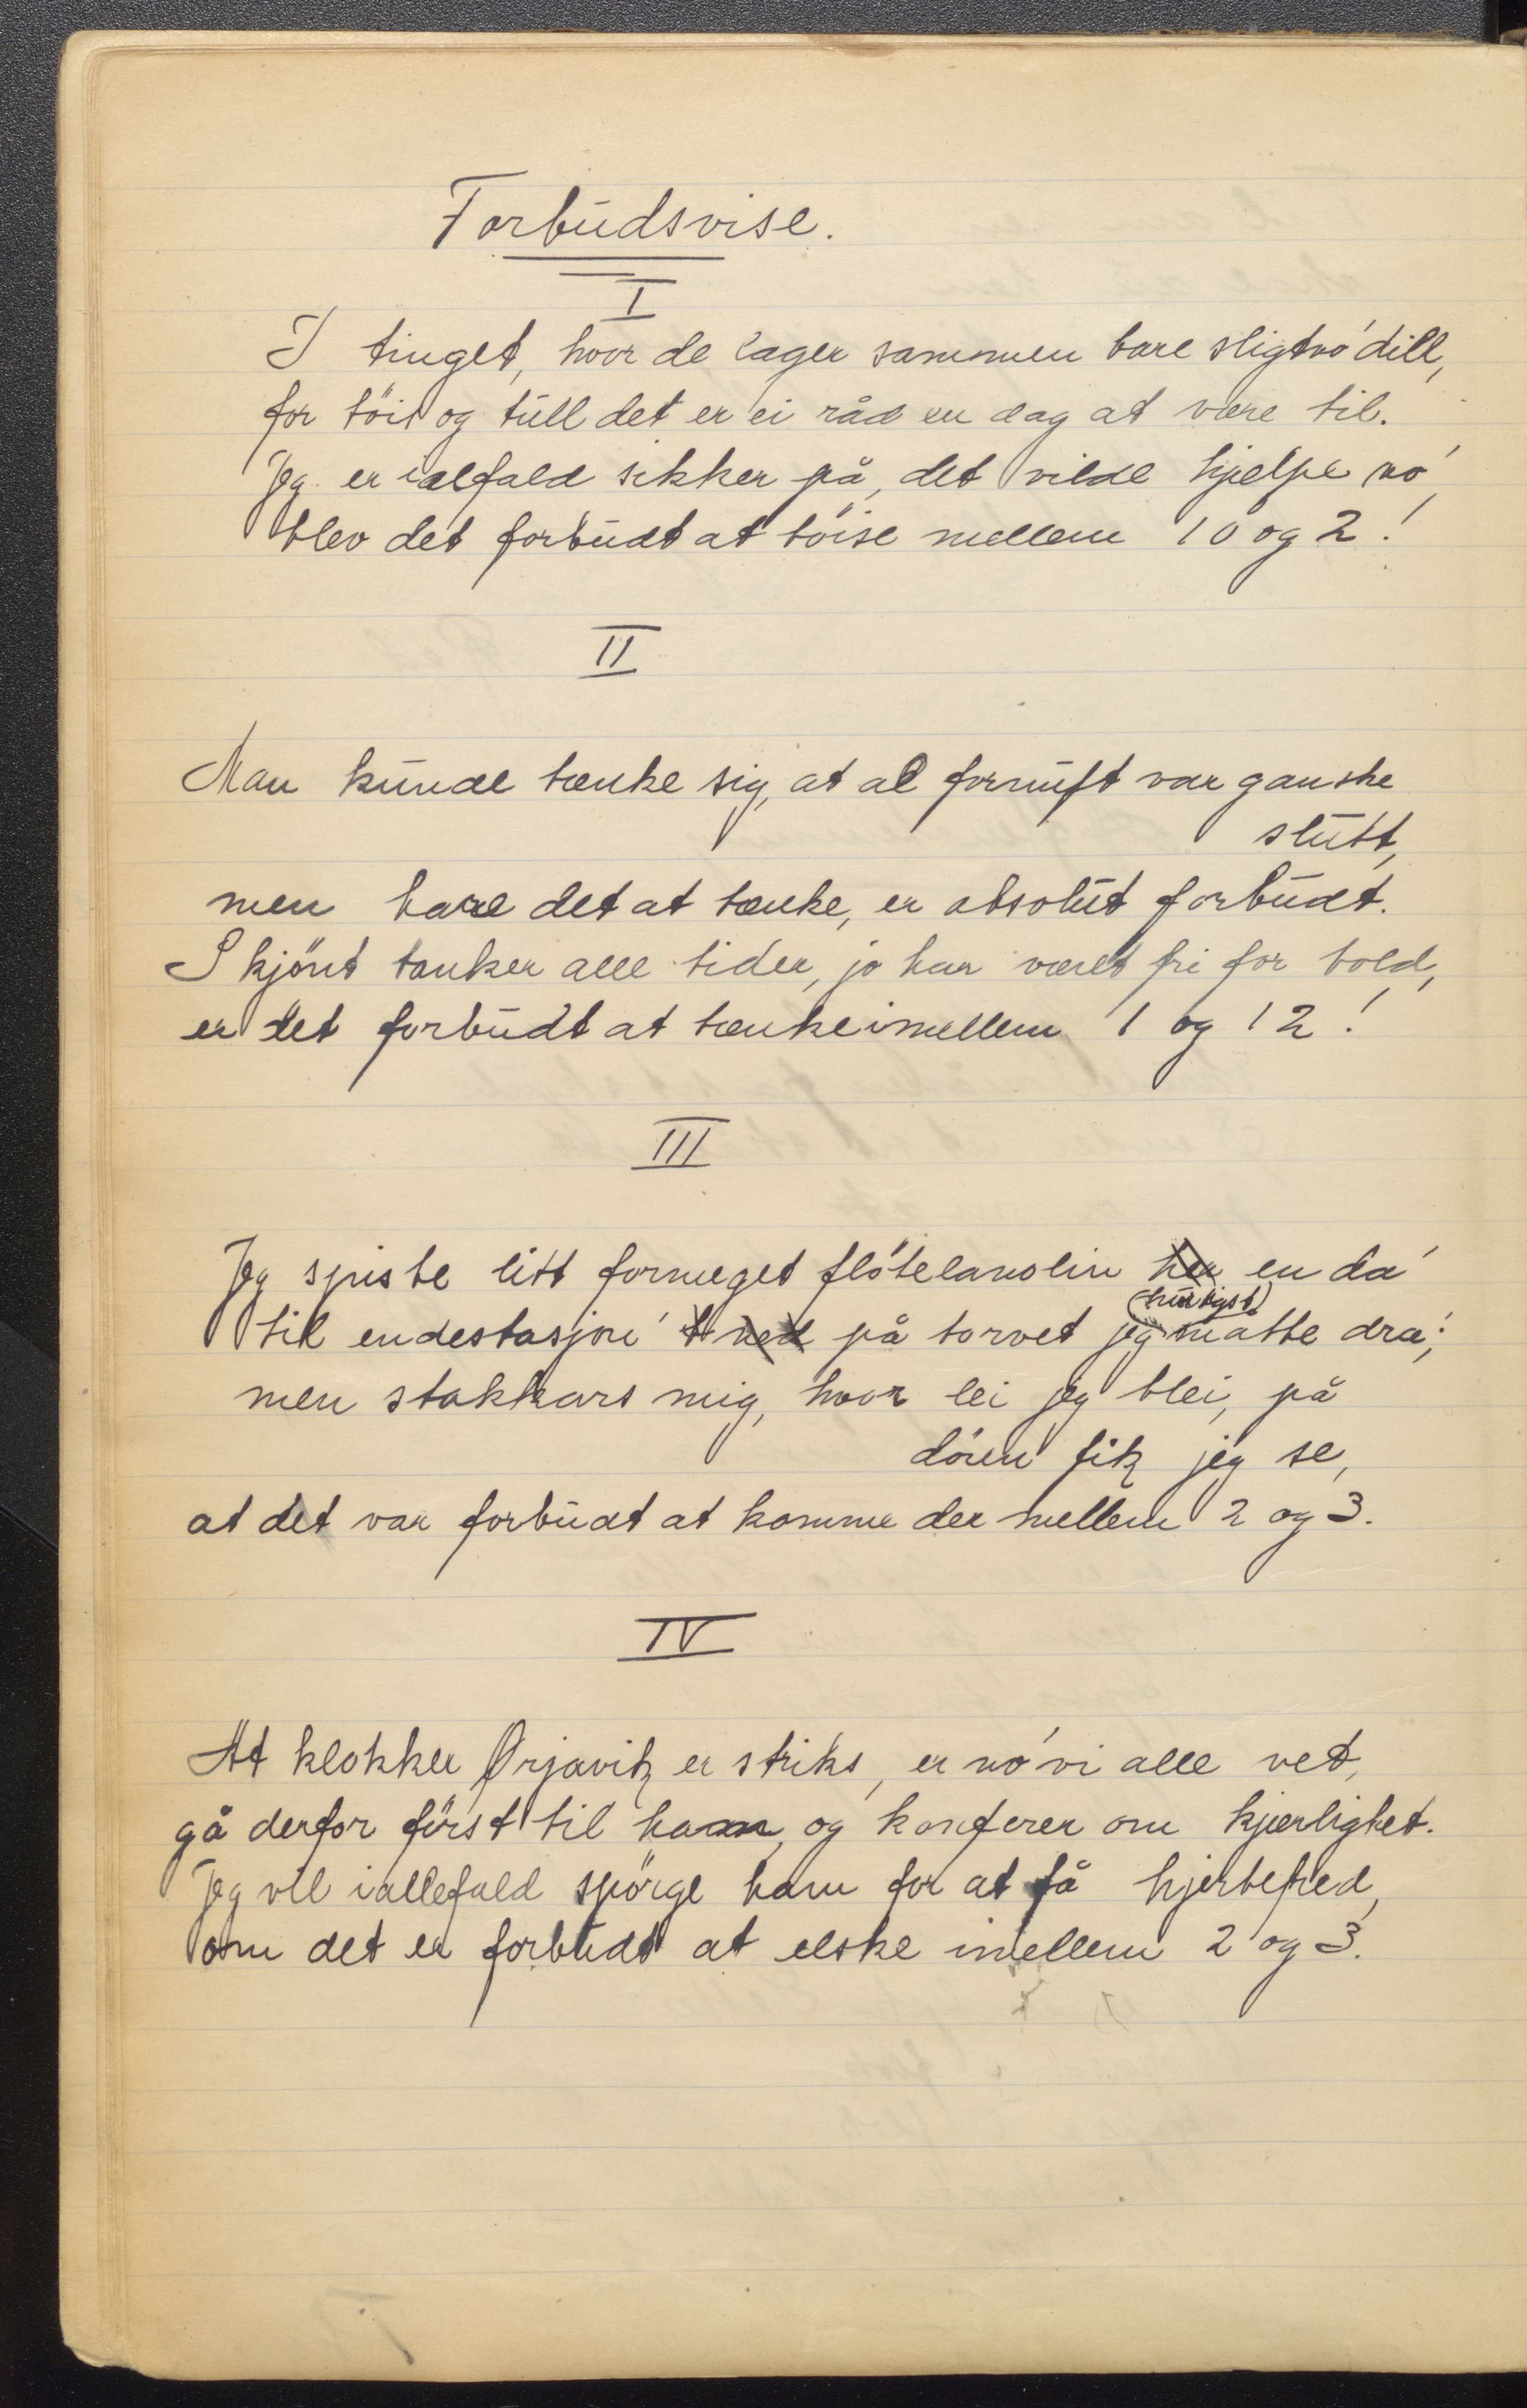 Forbudsvise.
I
I tinget, hvor de lager sammen bare sligt no' dill,
for töis og tull det er ei råd en dag at være til.
Jeg er ialfald sikker på, det vilde hjelpe no',
blev det forbudt at töise mellem 10 og 2!
II
Man kunde tænke sig, at al fornuft var ganske
slutt,
men bare det at tænke, er absolut forbudt.
Skjönt tanker alle tider, jo har været fri for told,
er det forbudt at tænke imellem 1 og 12!
III
Jeg spiste litt formeget flötelanolin her en da'
(hurtigst)
til endestasjon' t ned på torvet jeg måtte dra';
men stakkars mig, hvor lei jeg blei, på
dören fik jeg se,
at det var forbudt at komme der mellem 2 og 3.
IV
At klokker Ørjavik er striks, er no' vi alle vet,
gå derfor först til ham, og konferer om kjærlighet.
Jeg vil iallefald spörge ham for at få hjertefred,
om det er forbudt at elske imellem 2 og 3.